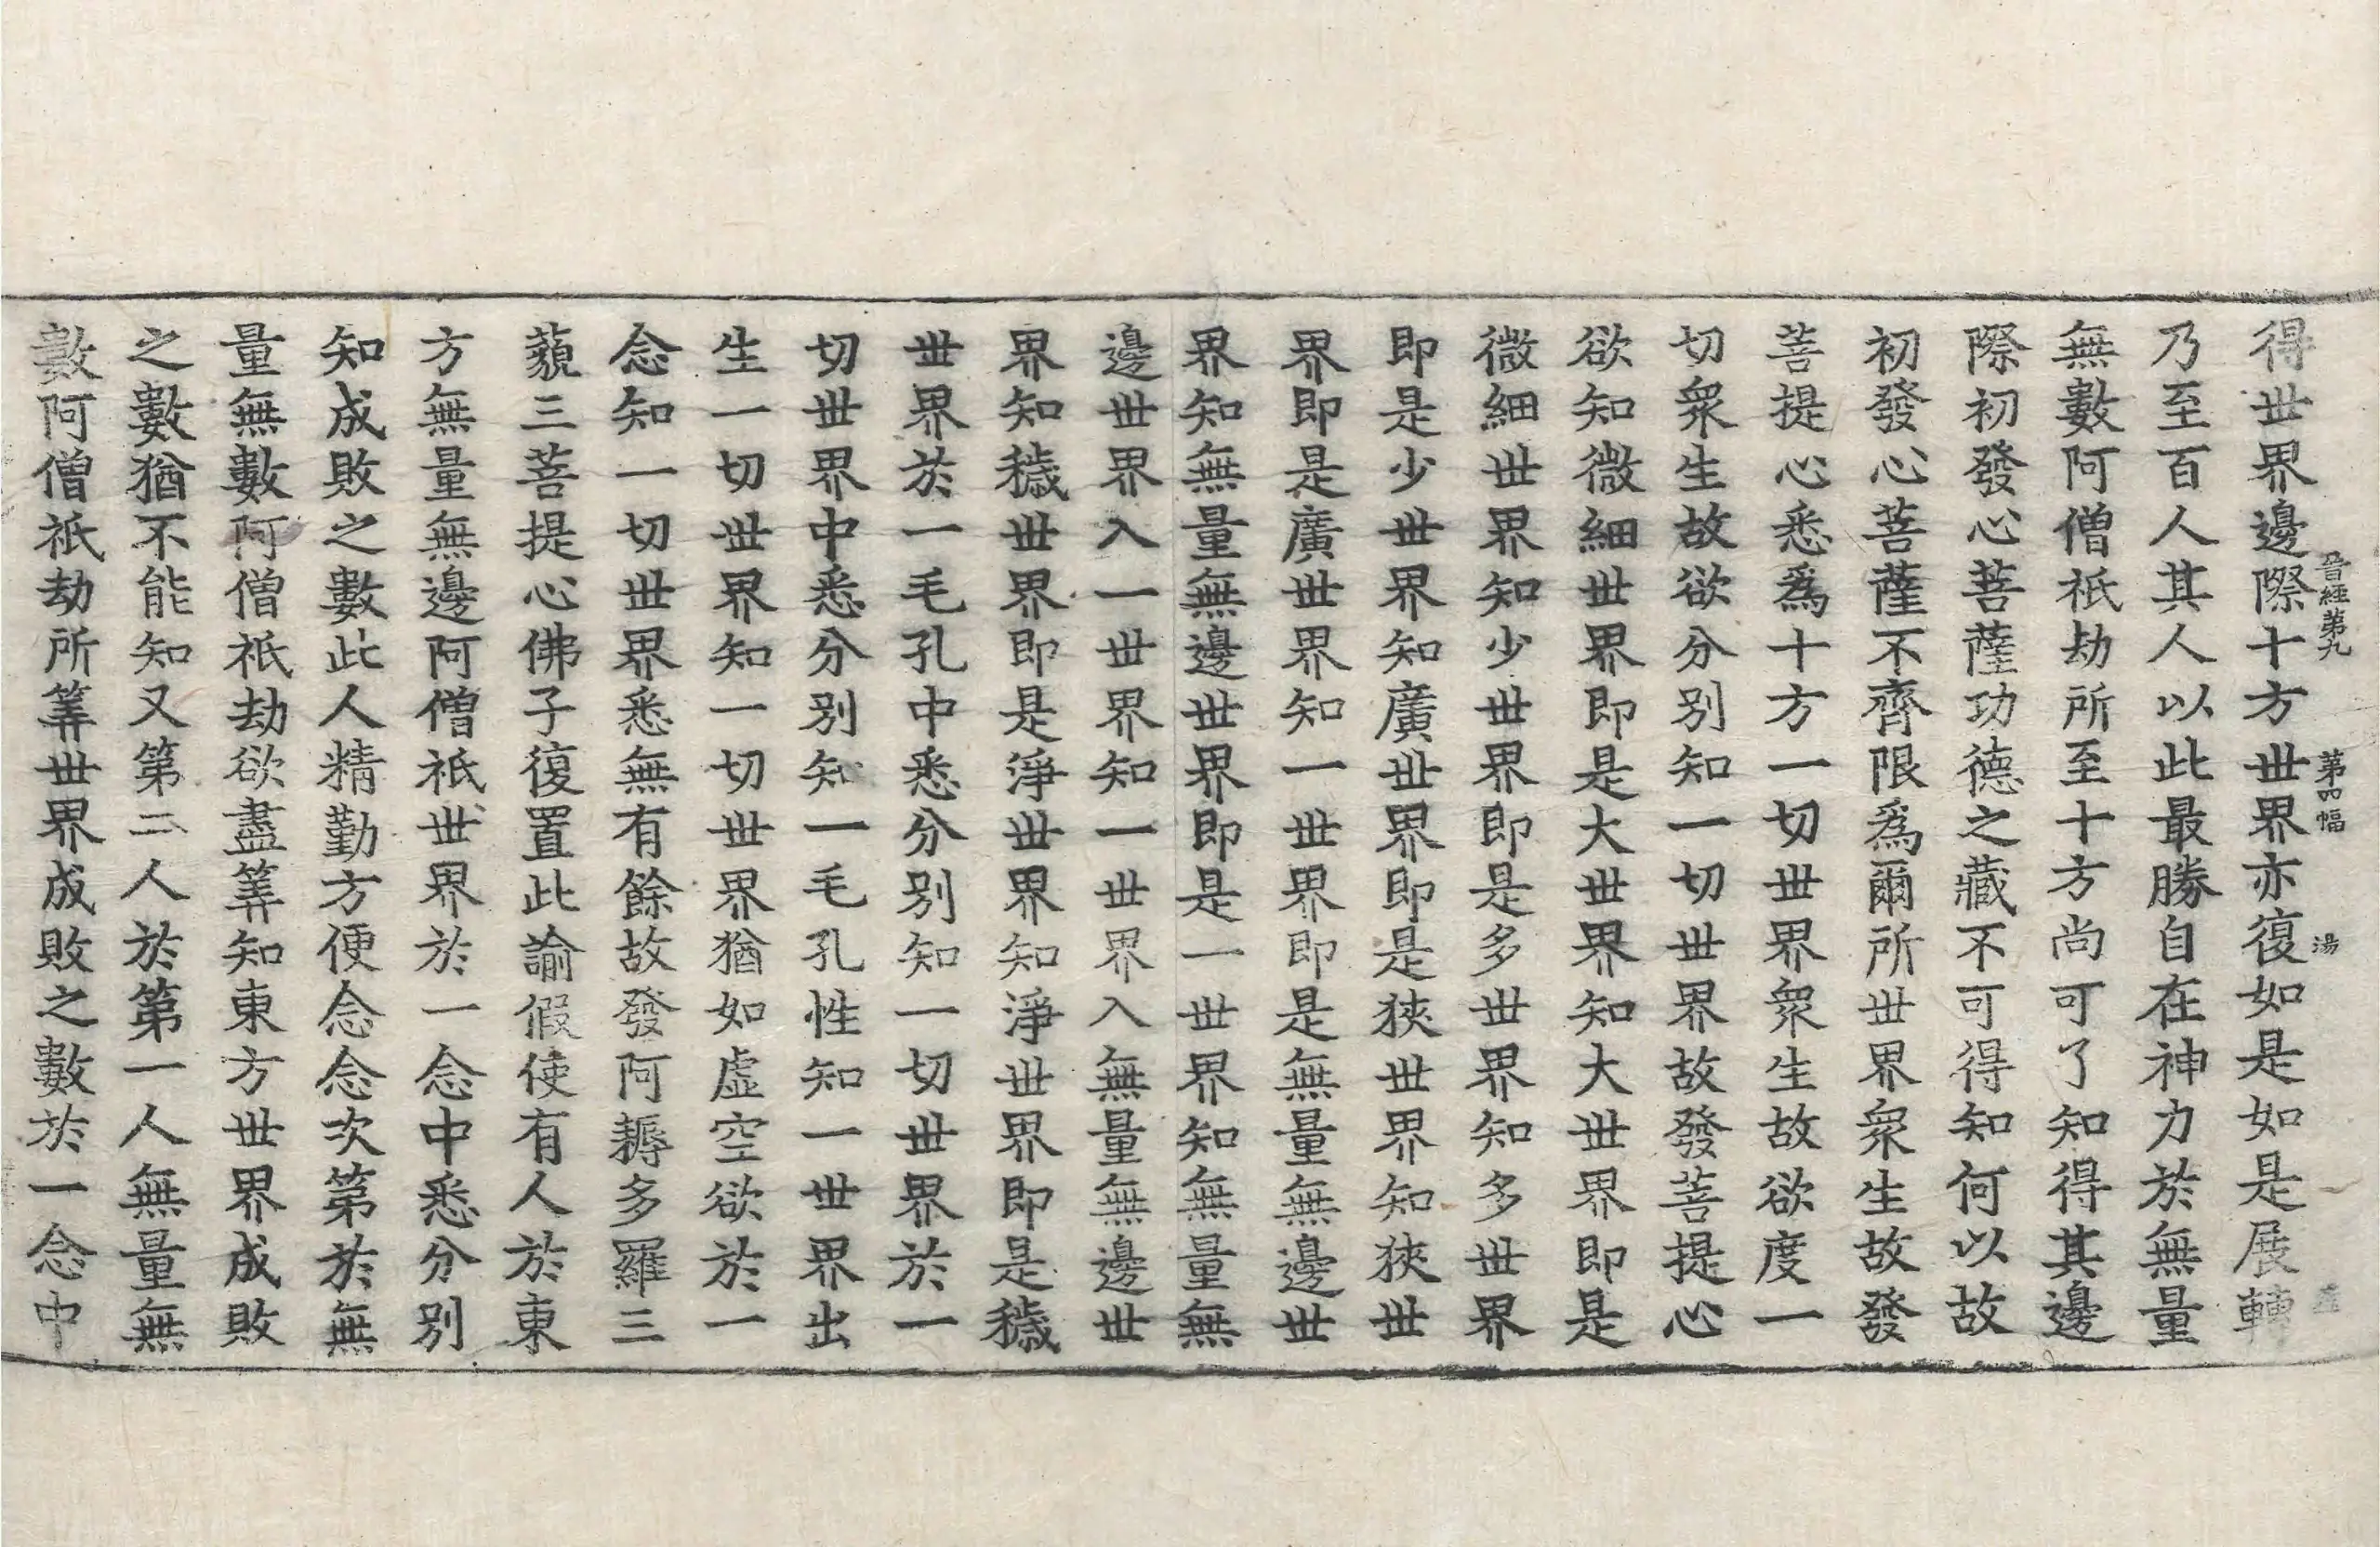 晉經第九 第四幅 湯
得世界邊際十方世界亦復如是如是展轉
乃至百人其人以此最勝自在神力於無量
無數阿僧祇劫所至十方尚可了知得其邊
際初發心菩薩功德之藏不可得知何以故
初發心菩薩不齊限為爾所世界衆生故發
菩提心悉為十方一切世界衆生故欲度一
切衆生故欲分別知一切世界故發菩提心
欲知微細世界即是大世界知大世界即是
微細世界知少世界即是多世界知多世界
即是少世界知廣世界即是狹世界知狹世
界即是廣世界知一世界即是無量無邊世
界知無量無邊世界即是一世界知無量無
邊世界入一世界知一世界入無量無邊世
界知穢世界即是淨世界知淨世界即是穢
世界於一毛孔中悉分別知一切世界於一
切世界中悉分別知一毛孔性知一世界出
生一切世界知一切世界猶如虛空欲於一
念知一切世界悉無有餘故發阿耨多羅三
藐三菩提心佛子復置此諭假使有人於東
方無量無邊阿僧祇世界於一念中悉分別
知成敗之數此人精勤方便念念次第於無
量無數阿僧祇劫欲盡筭知東方世界成敗
之數猶不能知又第二人於第一人無量無
數阿僧祇劫所筭世界成敗之數於一念中